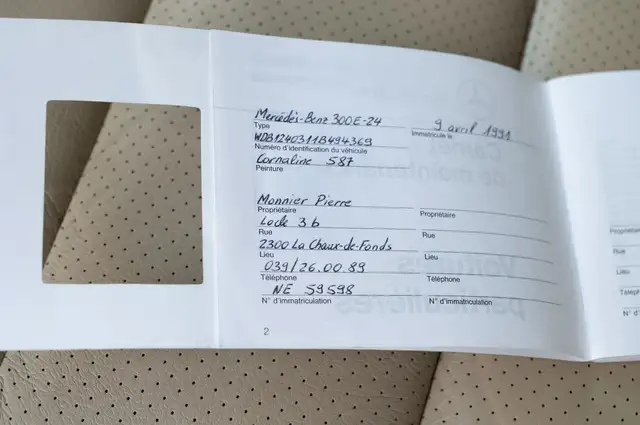 Mercédès-Benz 300E-24
Type
9 avril 1991
Immatriculé le
WDB1240311B494369
Numéro d'identification du véhicule
Cornaline 587
Peinture
Monnier Pierre
Propriétaire
Propriétaire
Locle 3b
Rue
Rue
2300 La Chaux-de-Fonds
Lieu
Lieu
039/26.00 89
Téléphone
Téléphone
NE 59598
N° d'immatriculation
N° d'immatriculation
2
Propriétaire
Rue
Lieu